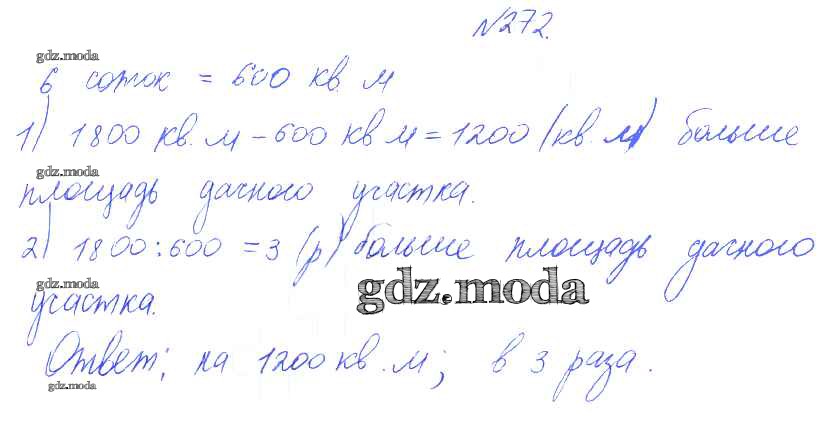 №272.
gdz.moda
6 соток = 600 кв. м
1) 1800 кв. м – 600 кв м = 1200 (кв. м) больше
gdz.moda
площадь дачного участка.
2) 1800 : 600 = 3 (р) больше площадь дачного
gdz.moda
gdz.moda
участка.
Ответ: на 1200 кв. м; в 3 раза.
gdz.moda